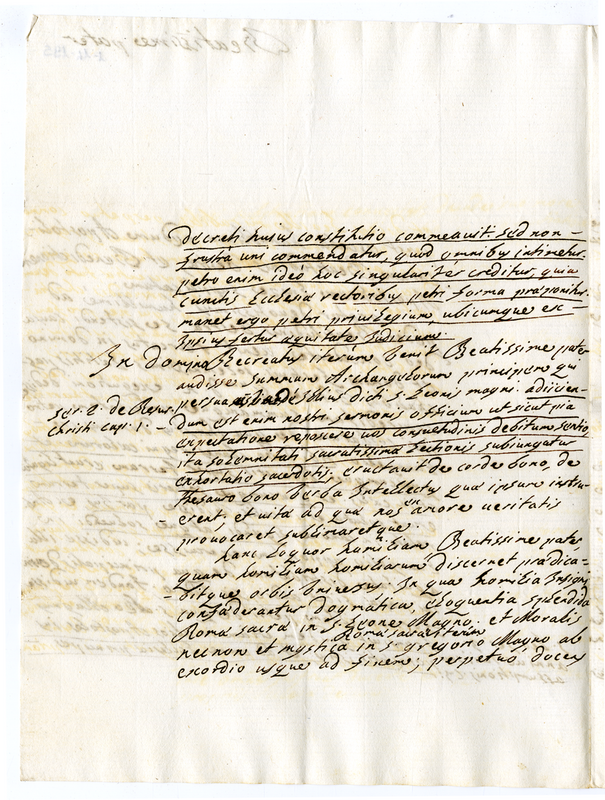 decreti huius constitutio commeavit. sed non
frustra uni commendatur, quod omnibus intimetur.
petro enim ideo hoc singulariter creditur, quia
cunctis Ecclesiæ rectoribus petri forma præponitur.
manet ergo petri privilegium, ubicumque ex
ipsius fertur æquitate judicium.
In domino Recreatus iterum venit Beatissime pater
audisse summum Archangelorum principem qui
persua dicti s. Leonis magni: adiicien-
ser. 2. de Resur.
Christi cap. 1.
dum est enim nostri sermonis officium ut sicut pia
expectatione reposcere vos consuetudinis debitum sentio
ita solemnitati sacratissimæ lectionis subiungatur
exhortatio sacerdotis, eructavit de corde bono, de
thesauro bono verba Intellectus quæ ipsum instru-
erent, et vita ad quæ nos amore veritatis
provocaret sublimaretque.
hanc loquor homiliam, Beatissime pater,
quam homiliam homiliarum discernet prædica-
bitque orbis Universus. In qua homilia Insigni
confæderantur dogmatica, eloquentia splendida
Roma sacra in s. Leone Magno. et Moralis
Roma sacra iterum
necnon et mystica in s. gregorio Magno ab
exordio usque ad finem; perpetuo, doces